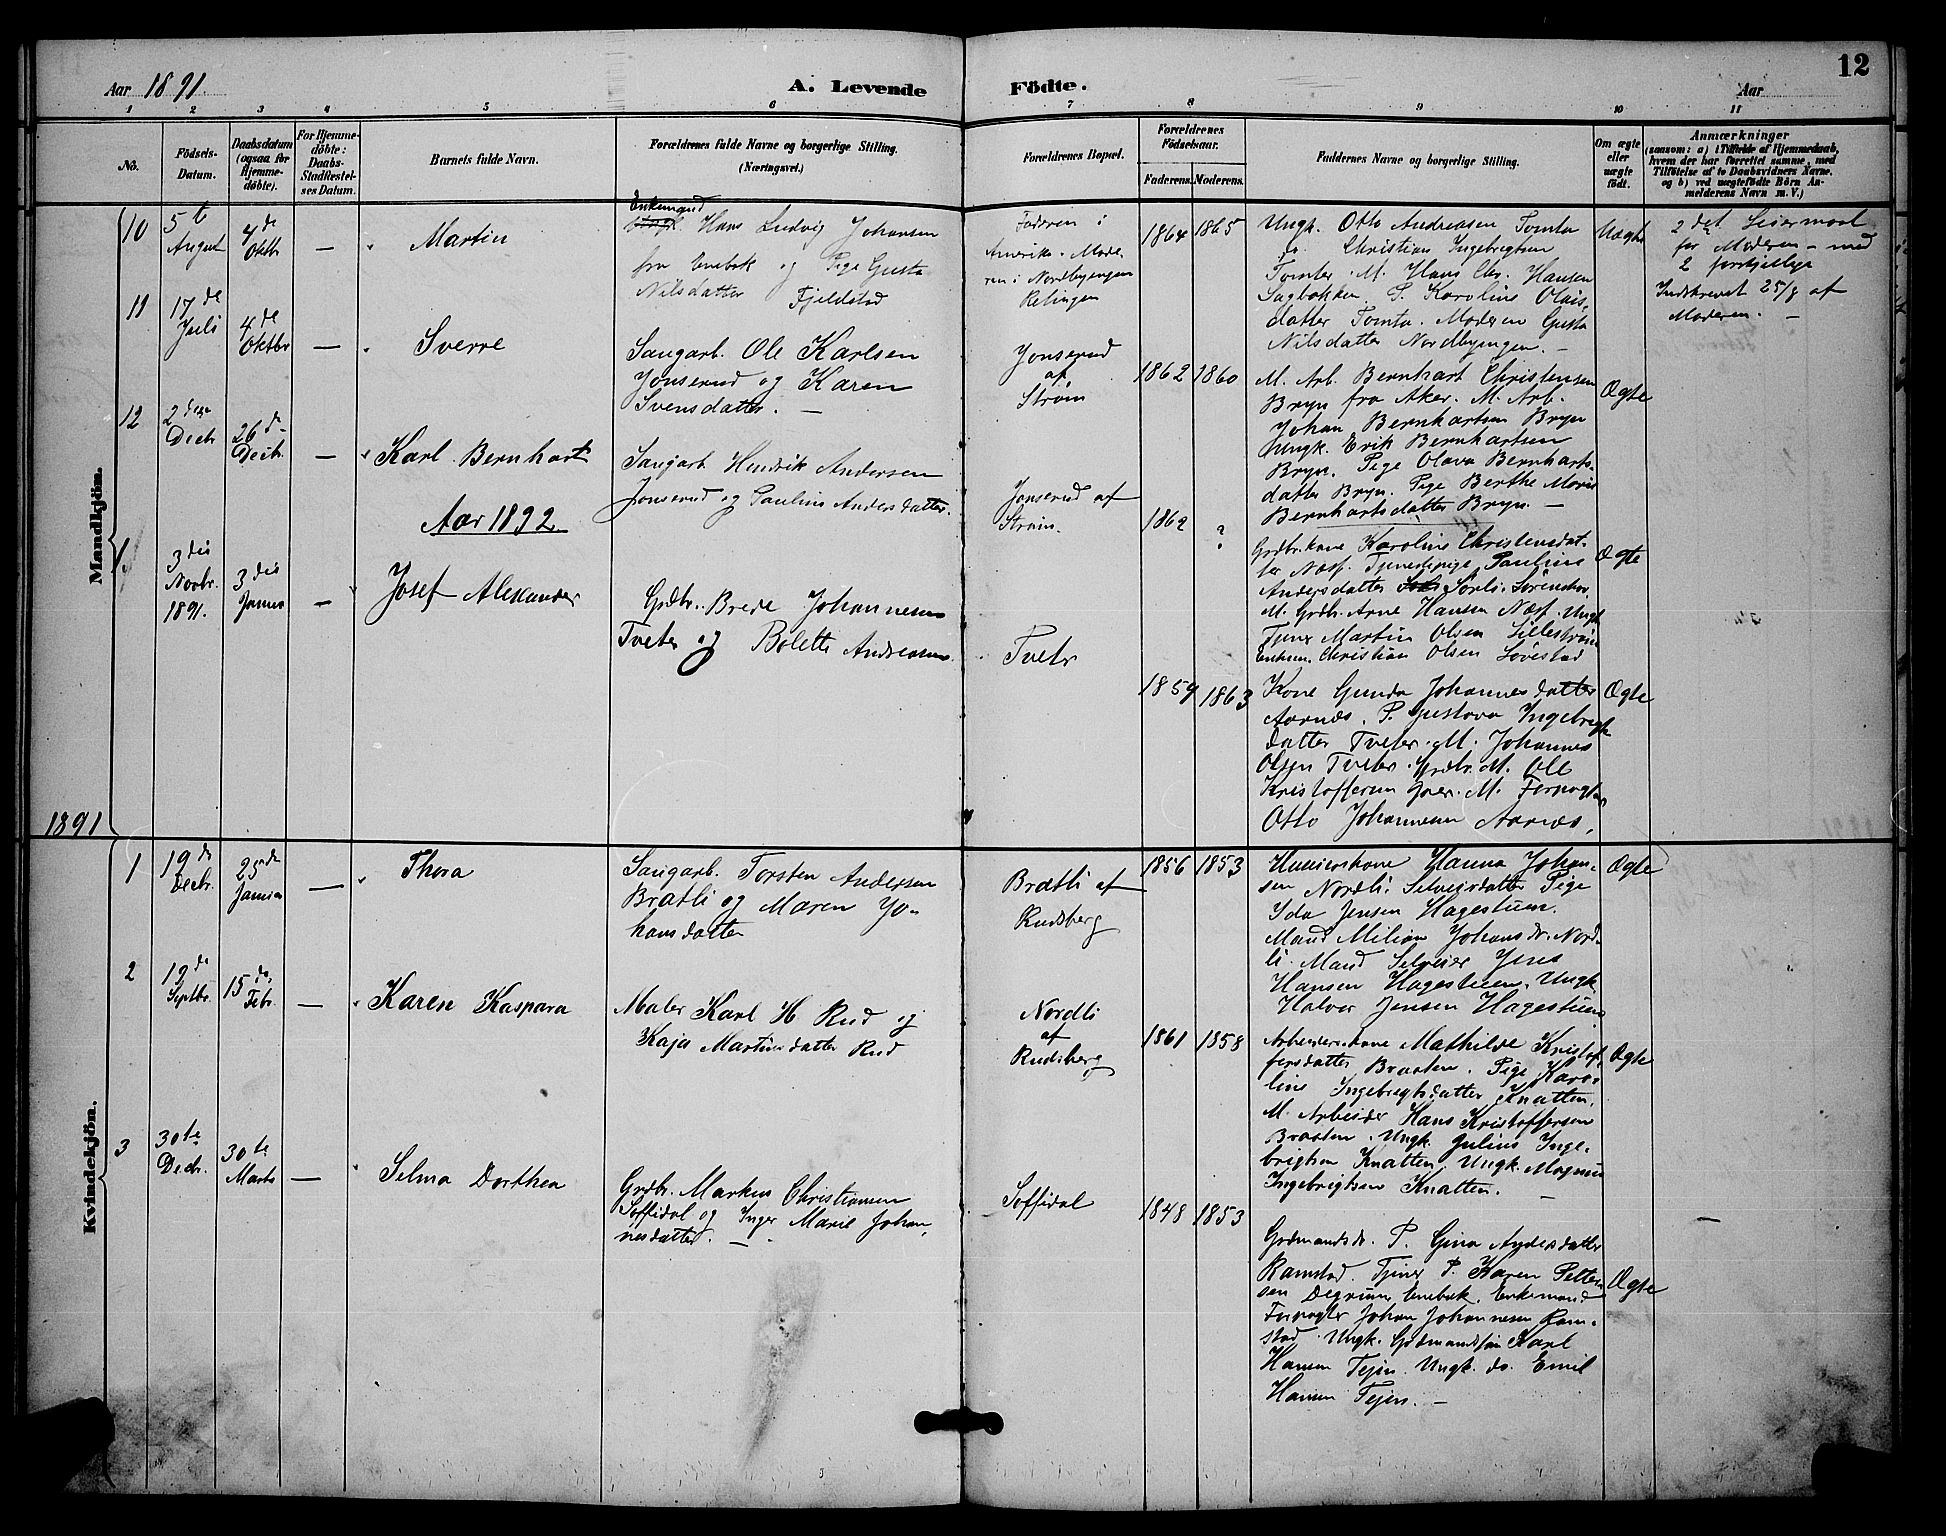 12
Aar 1891
A. Levende
Födte.
Aar
1 2 3 4 5 6 7 8 9 10 11
No.
Födsels-
Datum.
Daabsdatum
(ogsaa for
Hjemme-
döbte).
For Hjemme-
döbte:
Daabs-
Stadfæstel-
ses Datum.
Barnets fulde Navn.
Forældrenes fulde Navne og borgerlige Stilling.
(Næringsvei.)
Forældrenes Bopæl.
Forældrenes
Födselsaar.
Faderens. Moderens.
Faddernes Navne og borgerlige Stilling.
Om ægte
eller
uægte
födt.
Anmærkninger
(saasom: a) i Tilfælde af Hjemmedaab,
hvem der har forrettet samme, med
Tilföielse af to Daabsvidners Navne,
og b) ved uægtefödte Börn An-
melderens Navn m. V.)
Mandkjön.
10
5te
August
4de
Oktbr
—
Martin
Enkemand
Hans Ludvig Johansen
fra Enebak og Pige Gusta
Nilsdatter Fjeldstad
Faderen i
Amerika. Mode-
ren i Nordbyengen
Relingen
1864
1865
Ungk. Otto Andreasen Tomta
Christian Ingebrigtsen
Tomter. M. Hans Chr. Hansen
Sagbakken. P. Karoline Olais-
datter Tomta. Moderen Gusta
Nilsdatter Nordbyengen. —
Uægte
2det Leiermaal
for Moderen — med
2 forskjellige
Indskrevet 25/8 af
Moderen. —
11
17de
Juli
4de
Oktbr
—
Sverre
Saugarb. Ole Karlsen
Jonserud og Karen
Svensdatter. —
Jonserud
af
Strøm
1862
1860
M. Arb. Bernhart Christensen
Bryn fra Aker. M. Arb.
Johan Bernhartsen Bryn
Ungk. Erik Bernhartsen
Bryn. Pige Olava Bernharts-
datter Bryn. Pige Berthe Marie
Bernhartsdatter Bryn. —
Ægte
12
2den
Decbr
26de
Decbr
—
Karl Bernhart
Saugarb. Hendrik Andersen
Jonserud og Pauline Andersdatter.
Jonserud af
Strøm.
1862
?
Grdbr.kone Karoline Christensdat-
ter Næs. Tjenestepige Pauline
Andersdatter Sørli
M. Grdbr. Arne Hansen Næs. Ungk.
Tjener Martin Olsen Lillestrøm
Enkem. Christian Olsen Løvestad
Ægte
Aar 1892
1.
3die
Novbr.
1891.
3die
Januar
—
Josef Alexander
Grdbr. Brede Johannesen
Tveter og Bolette Andreasen.
Tveter
1859
1863
Kone Gunda Johannesdatter
Aarnæs. P. Gustava Ingebrigts
datter Tveter. M. Johannes
Olsen Tveter. Grdbr. M. Ole
Kristoffersen M. Forpagter
Otto Johannesen Aarnæs.
Ægte
1891
Kvindekjön.
1
19de
Decbr.
25de
Januar
—
Thora
Saugarb. Torsten Andersen
Bratli og Maren Jo-
hansdatter
Bratli af
Rudsberg
1856
1853
Hanna Johan-
sen Nordli. Selveierdatter Pige
Ida Jensen Hagestuen.
Mand Milian Johansdr. Nord-
li. Mand Selveier Jens
Hansen Hagestuen. Ungk.
Halvor Jensen Hagestuen
Ægte
2
19de
Septbr.
15de
Febr
—
Karen Kaspara
Maler Karl H Rud og
Kaja Martinsdatter Rud
Nordli
af
Rudsberg
1861
1858
Arbeiderskone Mathilde Kristof-
fersdatter Braaten. Pige Karo-
line Ingebrigtsdatter Knatten.
M. Arbeider Hans Kristoffersen
Braaten. Ungk. Julius Inge-
brigtsen Knatten. Ungk. Magnus
Ingebrigtsen Knatten. —
Ægte
3
30te
Decbr.
30te
Marts
—
Selma Dorthea
Grdbr. Markus Christiansen
Soffidal og Inger Marie Johan-
nesdatter. —
Soffidal
1848
1853
Grdmandsdr. P. Gina Andersdatter
Ramstad. Tjener P. Karen Petter-
sen Degrum Enebak. Enkemand
Forpagter Johan Johannesen Ram-
stad. Ungk. Grdmandssøn Karl
Hansen Tejen. Ungk. do. Emil
Hansen Tejen. —
Ægte
—